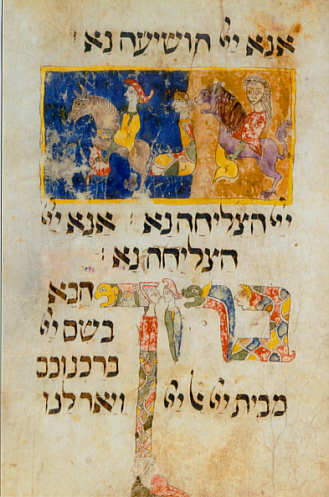 אנא ייי הושיעה נא :
ייי הצליחה נא : אנא ייי
הצליחה נא :
ברוך הבא
בשם ייי
ברכנוכם
מבית ייי אל ייי ויאר לנו